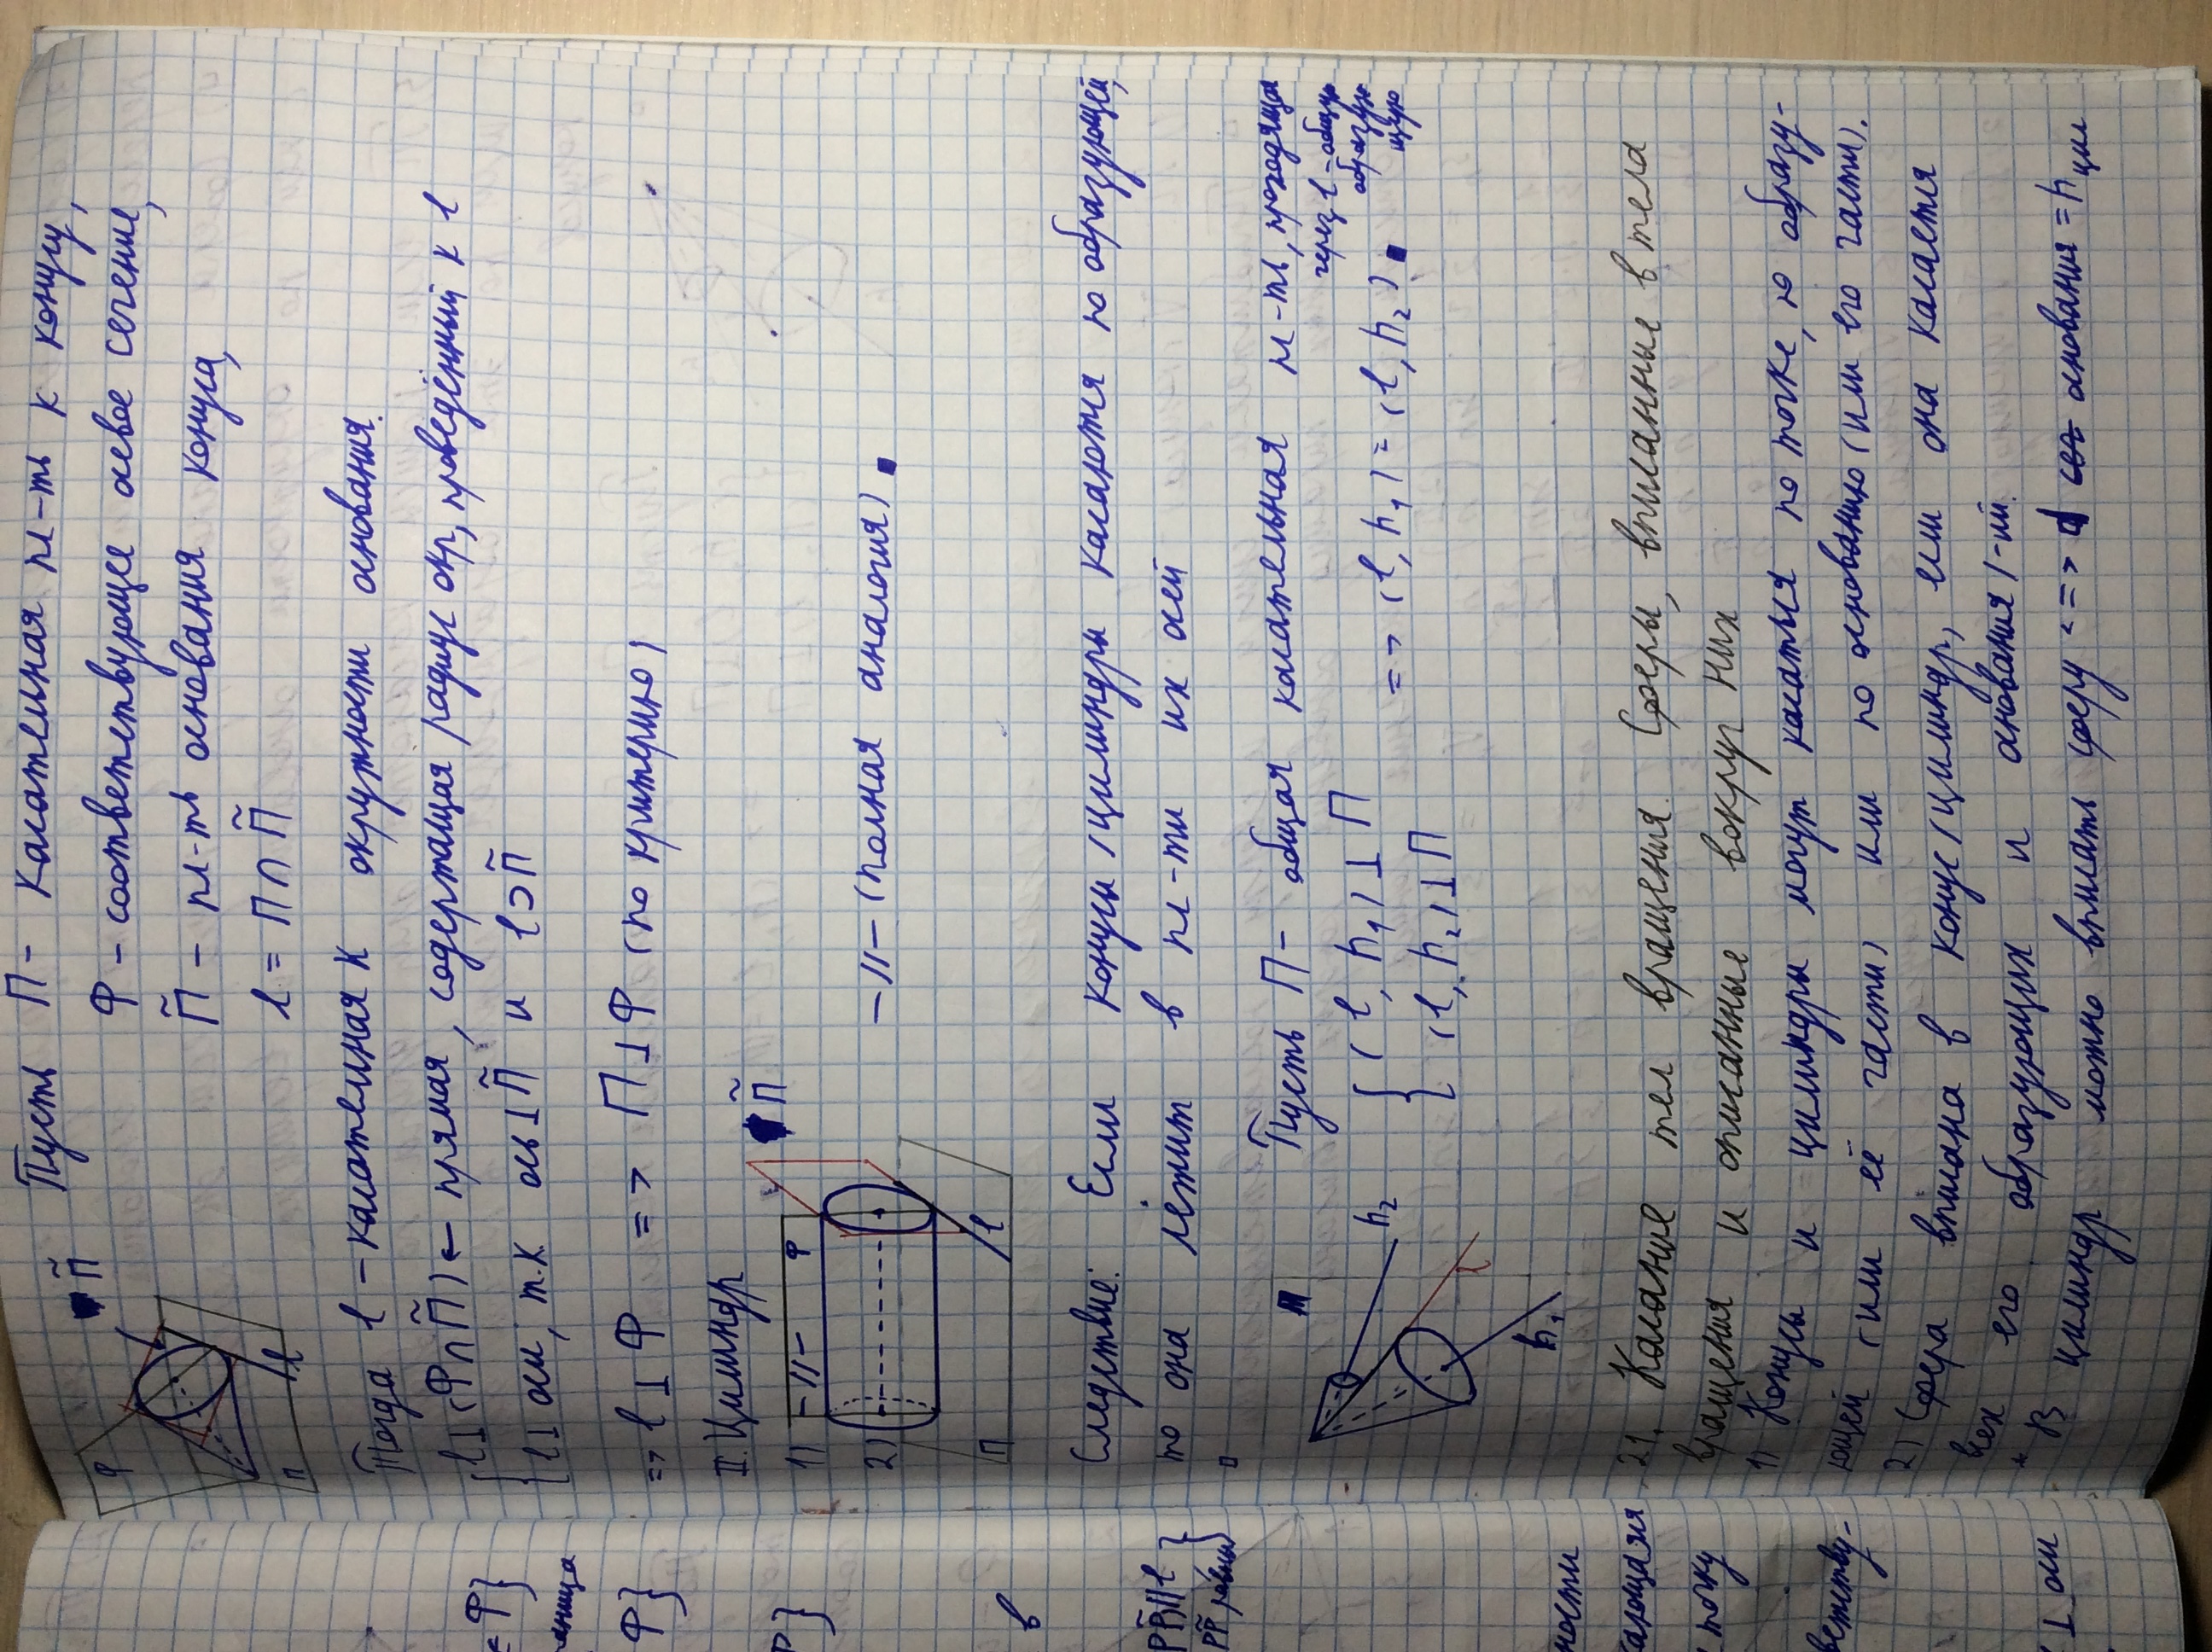 Пусть П - касательная пл-ть к конусу,
П̃
Ф
Ф - соответствующее осевое сечение,
П̃ - пл-ть основания конуса,
l = П∩П̃
П
l
Тогда l - касательная к окружности основания.
l⊥(Ф∩П̃) ← прямая, содержащая радиус окр, проведённый к l
l⊥оси, т.к. ось⊥П̃ и l⊃П̃
=> l⊥Ф => П⊥Ф (по критерию)
II. Цилиндр
П̃
1) -//- Ф
2)
-//- (полная аналогия) ■
П
l
Следствие: Если конусы/цилиндры касаются по образующей,
то она лежит в пл-ти их осей
□
Пусть П - общая касательная пл-ть, проходящая
через l - общую
образую-
щую
(l, h₁)⊥П
(l, h₂)⊥П
=> (l, h₁) = (l, h₂) ■
h₂
l
h₁
21. Касание тел вращения. Сферы, вписанные в тела
вращения и описанные вокруг них
1) Конусы и цилиндры могут касаться по точке, по образу-
ющей (или её части) или по основанию (или его части).
2) Сфера вписана в конус/цилиндр, если она касается
всех его образующих и основания/-ий.
* В цилиндр можно вписать сферу <=> d основания = h цил
= Ф}
аница
Ф}
Ф}
в
PP̃∥l
PP̃ равны
ности
кающаяся
точку
ветству-
⊥ оси